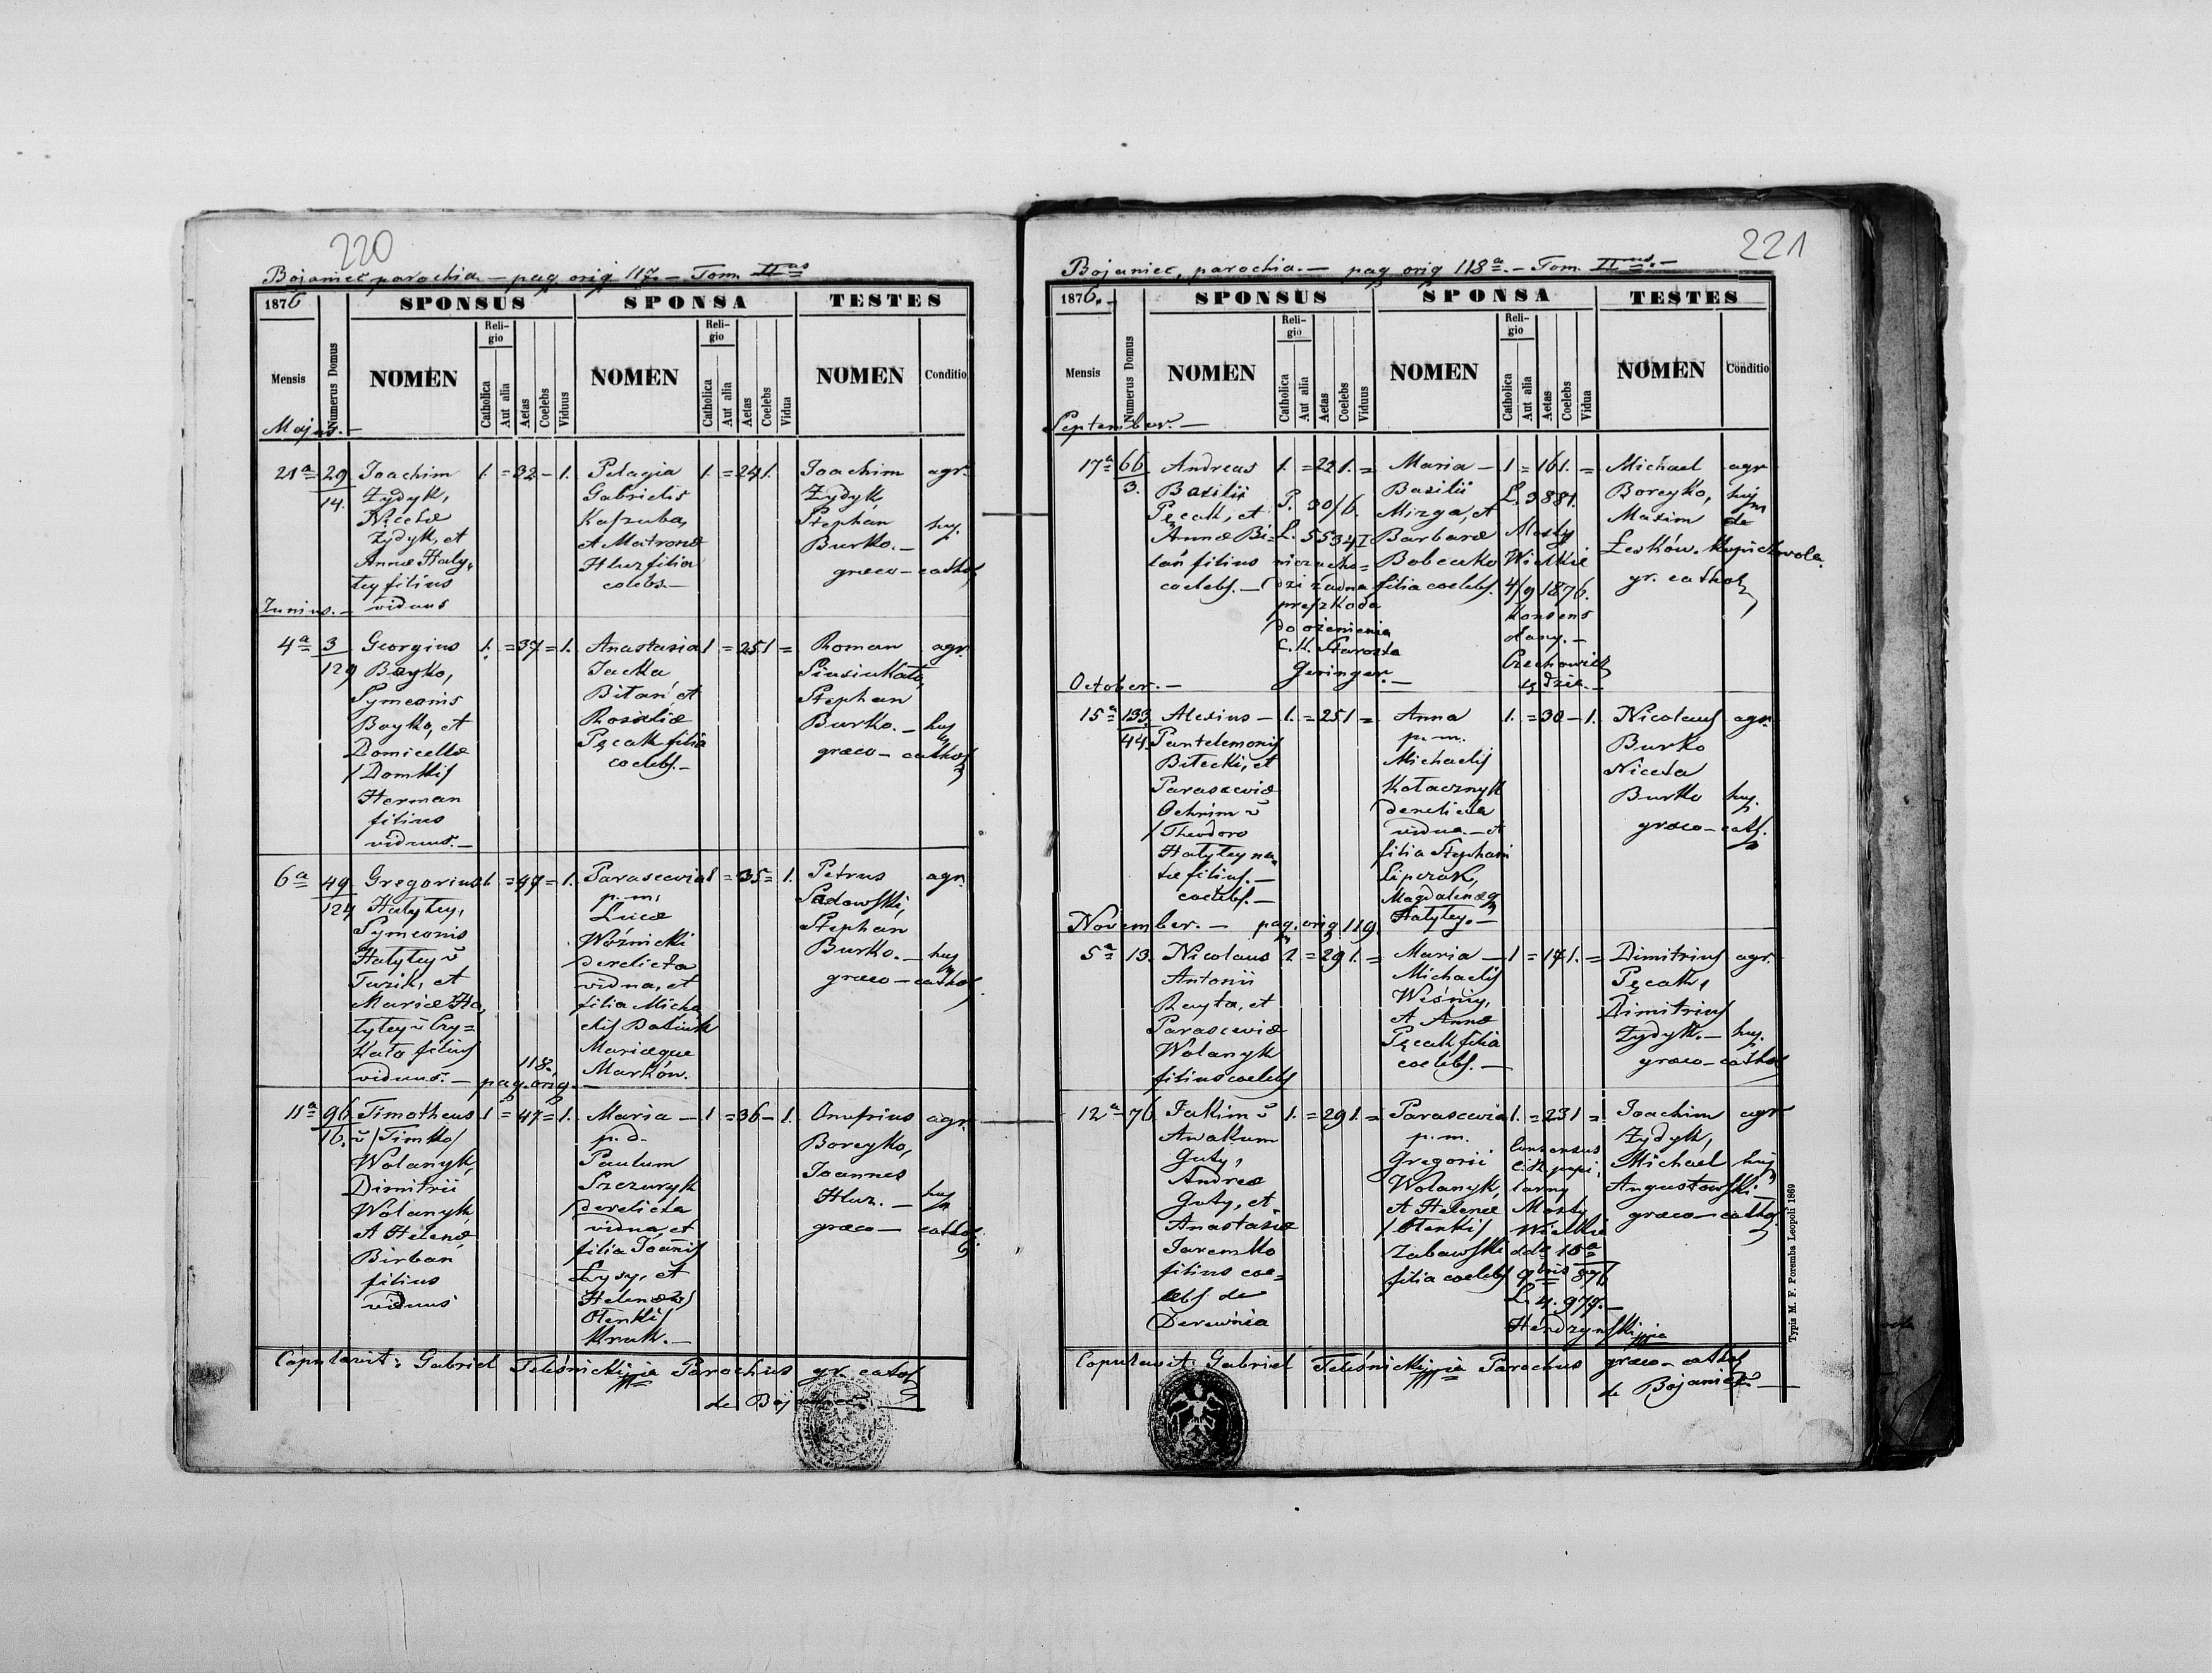 220
Bojaniec parochia. — pag. orig. 117. — Tom. II us
1876 SPONSUS SPONSA TESTES
Mensis Numerus Domus NOMEN Religio Catholica Aut alia Aetas Coelebs Viduus NOMEN Religio Catholica Aut alia Aetas Coelebs Vidua NOMEN Conditio
Majus. —
21ª 29 Joachim 1. = 32 — 1. Pelagia 1. = 24 1. Joachim agr.
14. Żydyk, Gabrielis Żydyk,
Nicetae Kaszuba, Stephan huj.
Żydyk, et et Matronae Burko. —
Annae Hały- Hluz filia graeco — cathol.
łey filius coelebs. —
viduus
Junius. —
4ª 3 Georgius 1. = 37 = 1. Anastasia 1 = 25 1 = Roman agr.
129 Boyko, Jacka
Symeonis Biłań, et Stephan
Boyko, et Rosaliae Burko. — huj.
Domicellae Pęcak filia graeco — cathol.
/Domkis coelebs. —
Herman
filius
viduus. —
6ª 49 Gregorius 1. = 47 = 1. Parascevia 1 = 35 = 1. Petrus agr.
124 Hałyłey, p. m. Sadowski,
Symeonis Lucae Stephan
Hałyłey v Woźnicki Burko. — huj.
Tuzik, et derelicta graeco — cathol.
Mariae Ha- vidua, et
łyłey v Cry= filia Micha
kało filius elis
viduus. — Mariaeque
118. Marków.
pag. orig. —
11ª 96 Timotheus 1 = 47 = 1. Maria — 1 = 36 — 1. Onufrius agr.
16. v /Timko/ p. d. Boreyko,
Wolanyk, Paulum Joannes
Dimitrii Szczuryk Hluz. — huj.
Wolanyk derelicta graeco — cathol.
et Helenae vidua, et
Birban filia Joannis
filius Łysy, et
viduus Helenae
Olenkis
Kruk. —
Copulavit: Gabriel Teleśnicki mpia Parochus gr. cathol.
de Bojaniec
221
Bojaniec, parochia. — pag. orig. 118ª. — Tom. II us. —
1876. — SPONSUS SPONSA TESTES
Mensis Numerus Domus NOMEN Religio Catholica Aut alia Aetas Coelebs Viduus NOMEN Religio Catholica Aut alia Aetas Coelebs Vidua NOMEN Conditio
September. —
17ª 66 Andreas 1. = 22 1. = Maria — 1 = 16 1. = Michael agr.
3. Basilii P. 30/6. Basilii L. 3881. Boreyko, huj.
Pęcak, et L. 5534/I Mizga, et Mosty Maxim de
Annae Bi= niezacho= Barbarae Wielkie Łesków. Kupiczwola.
łań filius dzi żadna Bobecko 4/9 1876. gr. cathol.
coelebs. — przeszkoda filia coelebs. Konsens
do ożenienia dany. —
C. K. Starosta Czechowicz
Geringer. — sędzia. —
October. —
15ª 133. Alexius — 1. = 25 1 = Anna 1. = 30 — 1. Nicolaus agr.
44. Pantelemonis p. m. Burko
Bilecki, et Michaelis Niceta
Parasceviae Kołacznyk Burko huj.
Ochrim v derelicta graeco — cath.
/Theodoro vidua. — et
Hałyłey na= filia Stephani
tae filius. — Lipczak,
coelebs. — Magdalenaeq
Hałyłey. —
November. — pag. orig. 119.
5ª 13. Nicolaus 1 = 29 1. = Maria — 1 = 17 1. = Dimitrius agr.
Antonii Michaelis Pęcak,
Rayta, et Wiśniy, Dimitrius
Parasceviae et Annae Żydyk. — huj.
Wolanyk Pęcak filia graeco — cathol
filius coelebs coelebs. —
12ª 76. Jakim v 1. = 29 1. = Parascevia 1. = 23 1 = Joachim agr.
Awakum p. m. Consensus Żydyk,
Guty, Gregorii C. K. pupi= Michael huj.
Andreae Wolanyk, larny Angustowski. —
Guty, et et Helenae Mosty graeco — cathol.
Anastasiae /Olenkis/ Wielkie
Jaremko Zabawski ddo 10ª
filius coe= filia coelebs 9bris 876
lebs de L. 4.977. —
Derewnia Hendzynski mpia
Copulavit: Gabriel Teleśnicki mpia Parochus graeco — cathol
de Bojaniec —
Typis M. F. Poremba Leopoli 1869